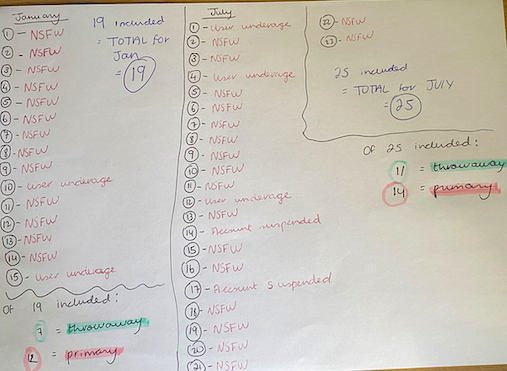 January
1 - NSFW
2 - NSFW
3 - NSFW
4 - NSFW
5 - NSFW
6 - NSFW
7 - NSFW
8 - NSFW
9 - NSFW
10 - User underage
11 - NSFW
12 - NSFW
13 - NSFW
14 - NSFW
15 - User underage
19 included
= TOTAL for
Jan
= 19
Of 19 included:
7 = throwaway
12 = primary
July
1 - User underage
2 - NSFW
3 - NSFW
4 - User underage
5 - NSFW
6 - NSFW
7 - NSFW
8 - NSFW
9 - NSFW
10 - NSFW
11 - NSFW
12 - User underage
13 - NSFW
14 - Account suspended
15 - NSFW
16 - NSFW
17 - Account suspended
18 - NSFW
19 - NSFW
20 - NSFW
21 - NSFW
22 - NSFW
23 - NSFW
25 included
= TOTAL for JULY
= 25
Of 25 included:
11 = throwaway
14 = primary